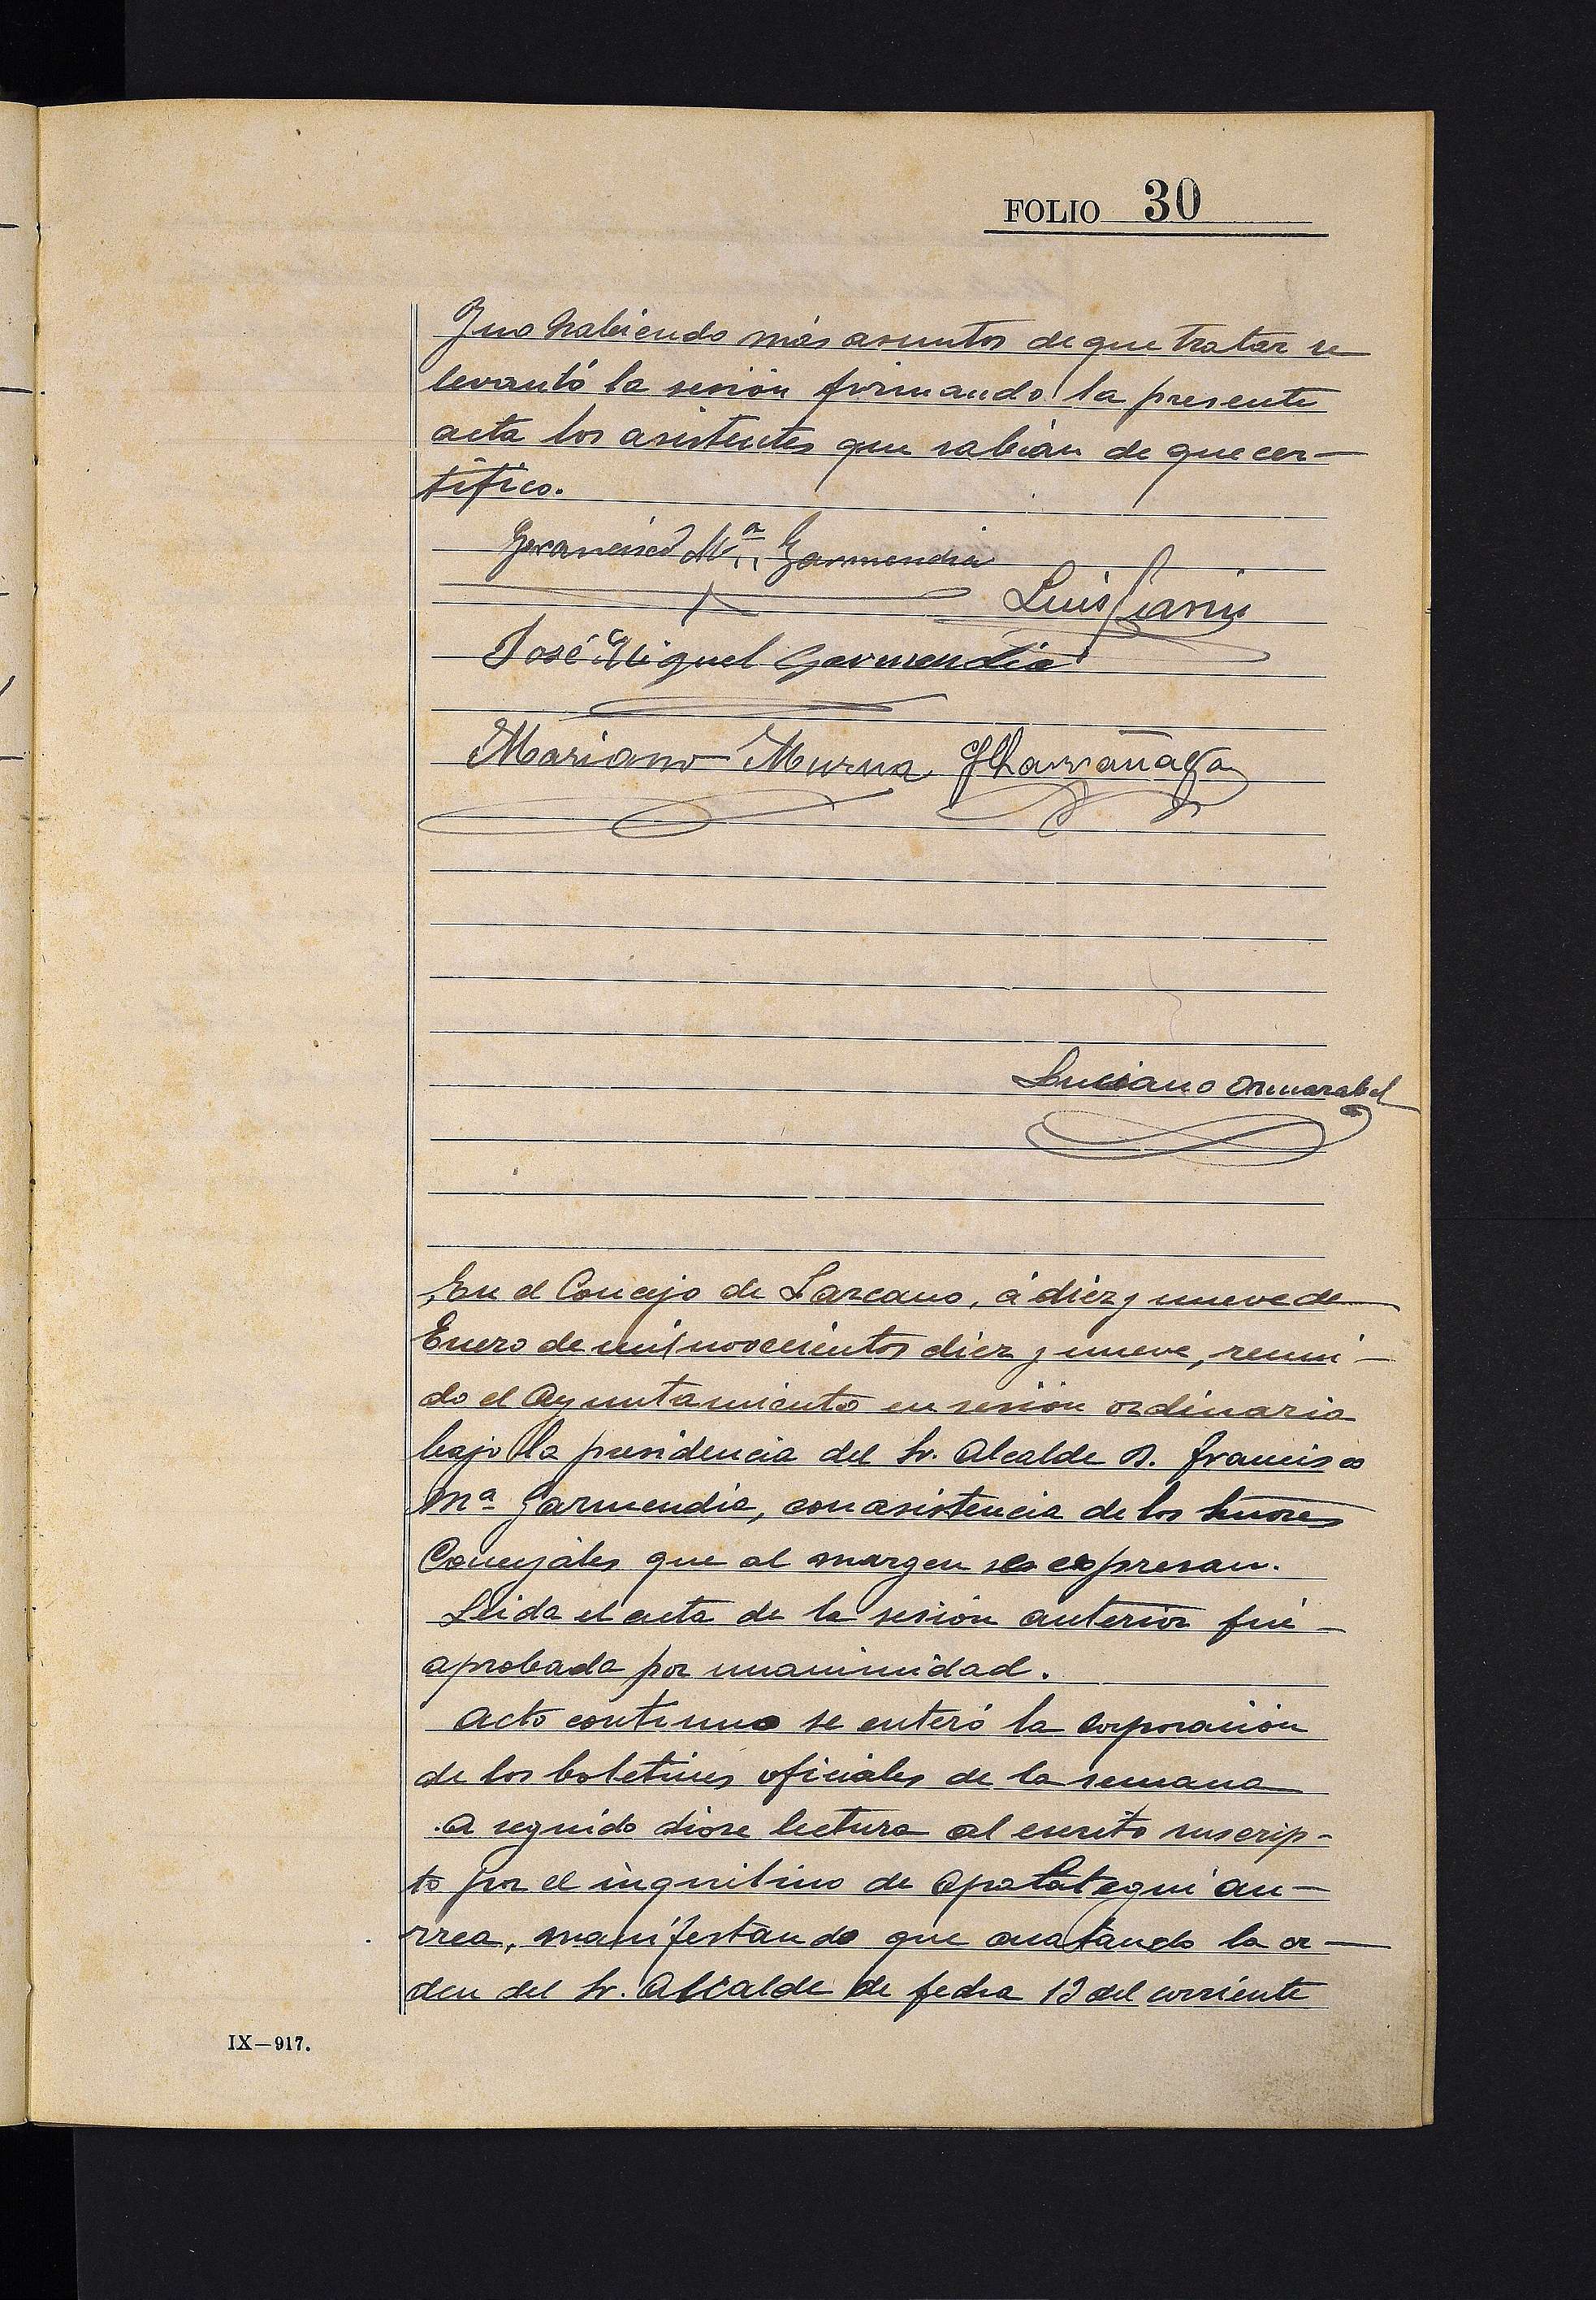 FOLIO 30
Y no habiendo más asuntos de que tratar se
levantó la sesión firmando la presente
acta los asistentes que sabian de que cer-
tífico.
Francisco Mª Garmendia
Luis
José Miguel Garmendia
Mariano Murua JLarrañaga
Luciano Ormazabal
En el Concejo de Lazcano, á diez y nueve de
Enero de mil novecientos diez y nueve, reuni-
do el Ayuntamiento en sesión ordinaria
bajo la presidencia del Sr. Alcalde D. Francisco
Mª Garmendia, con asistencia de los Señores
Concejales que al margen se expresan.
Leida el acta de la sesión anterior fué
aprobada por unanimidad.
Acto continuo se enteró la Corporación
de los boletines oficiales de la semana
A seguido diose lectura al escrito suscrip-
to por el inquilino de Apalategui au-
rrea, manifestando que acatando la or-
den del Sr. Alcalde de fecha 13 del corriente
IX-917.